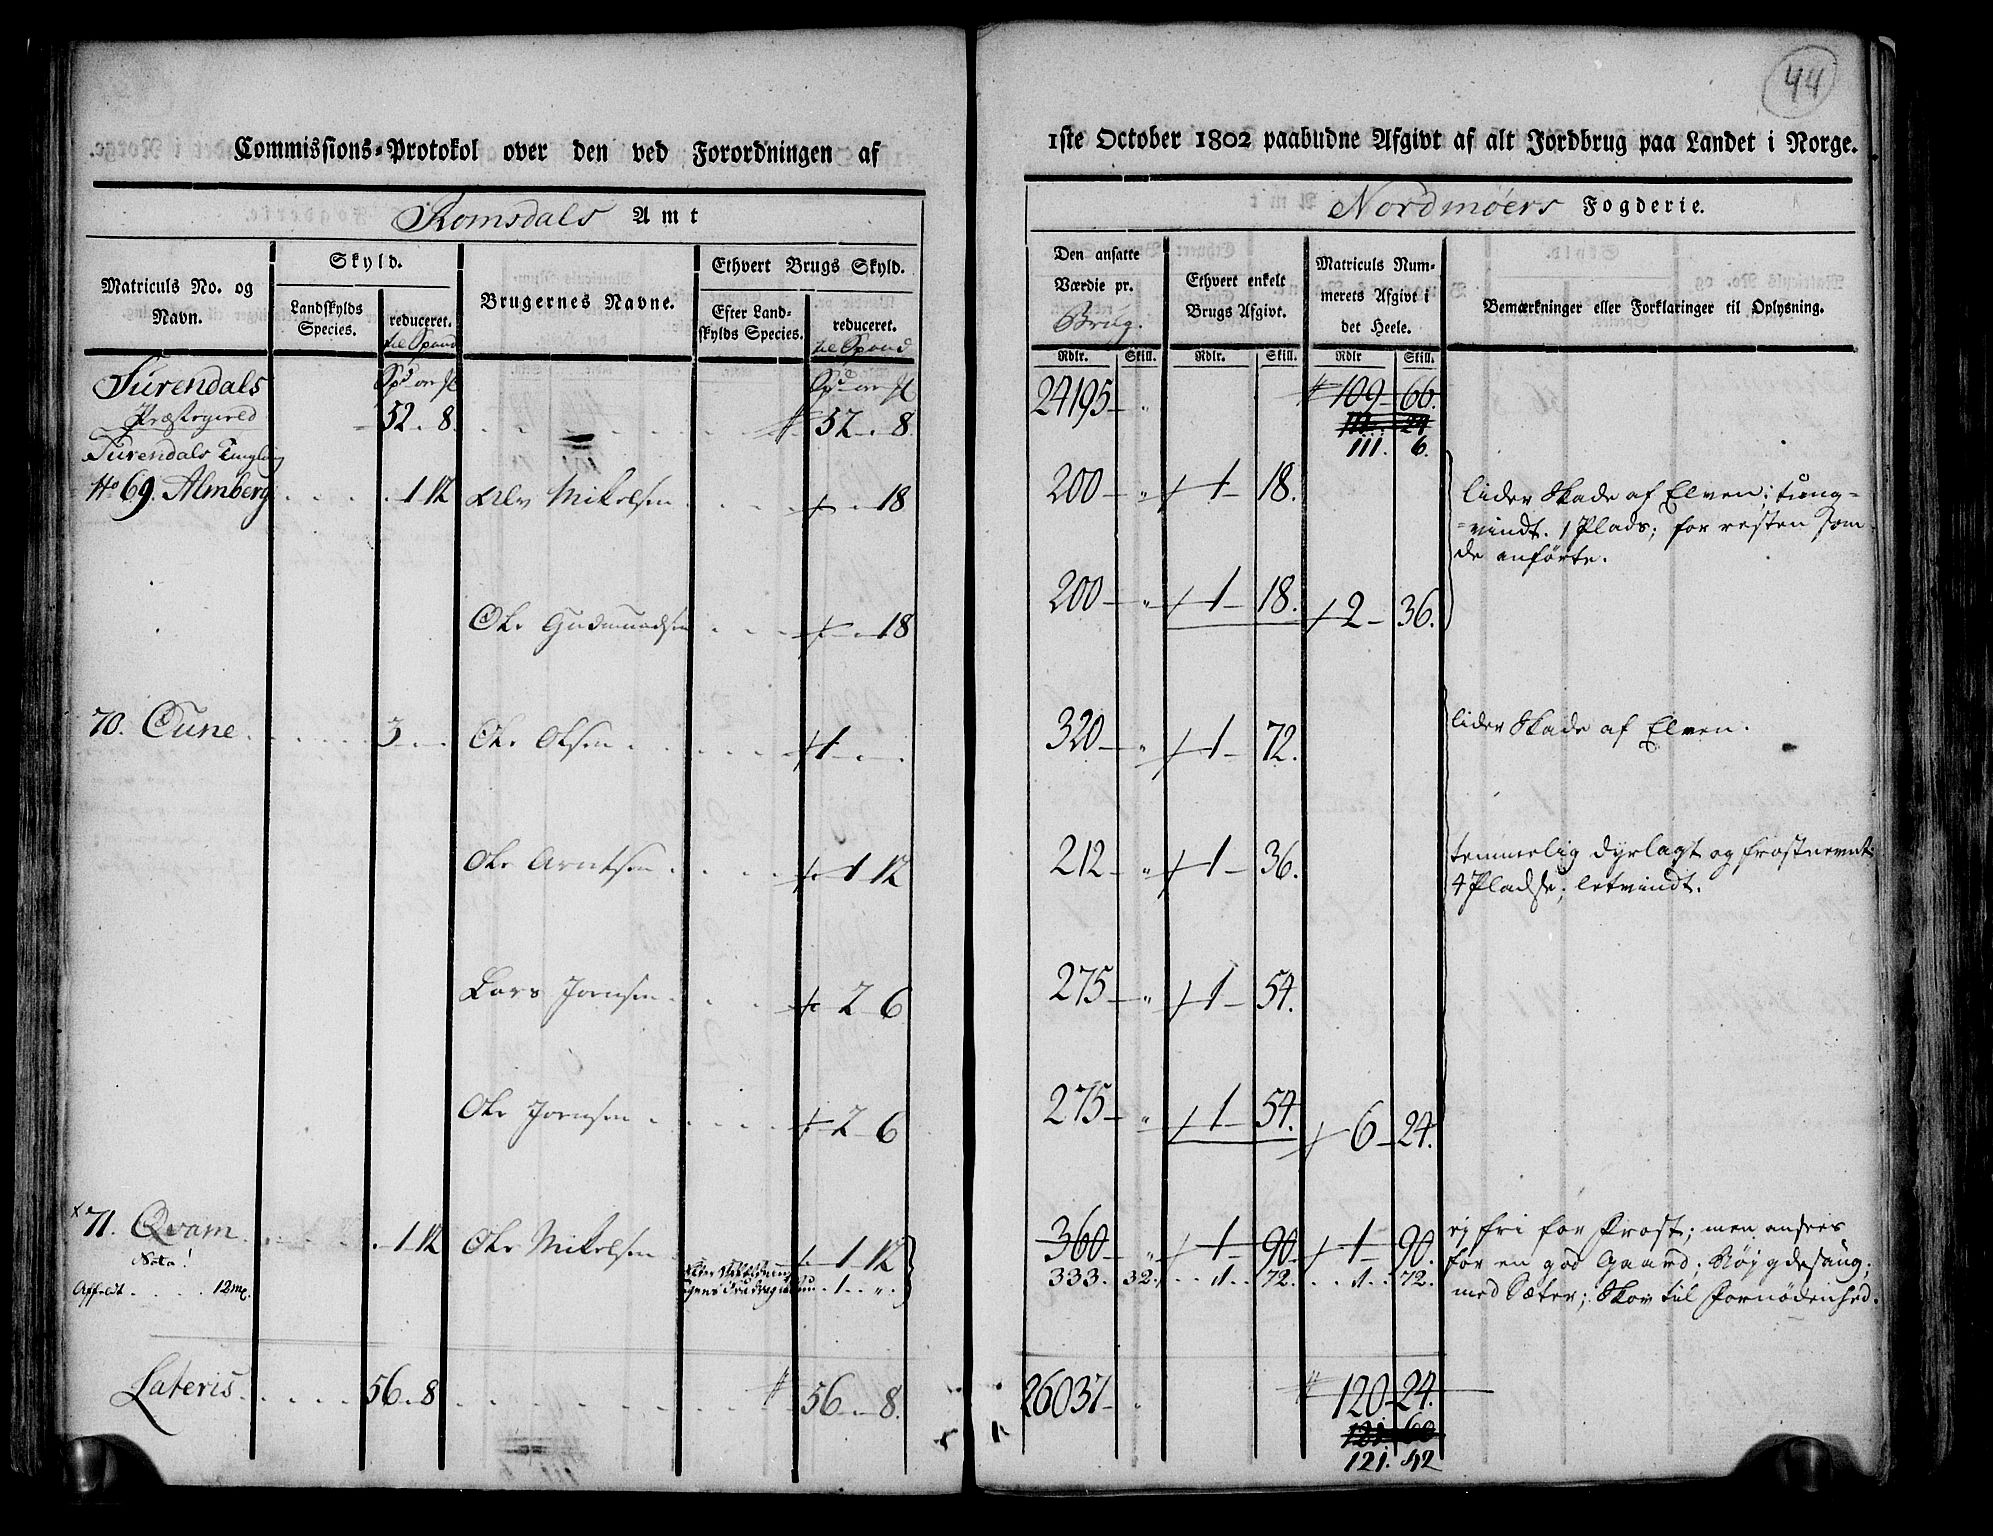 44
Commissions-Protokol over den ved Forordningen af
1ste October 1802 paabudne Afgivt af alt Jordbrug paa Landet i Norge.
Romsdals Amt
Nordmøers Fogderie.
Matriculs No. og Navn.
Skyld.
Landskylds Species.
reduceret. til Spand
Brugernes Navne.
Ethvert Brugs Skyld.
Efter Landskylds Species.
reduceret. til Spand
Den ansatte Værdie pr. Brug.
Ethvert enkelt Brugs Afgivt.
Matriculs Nummerets Afgivt i det Heele.
Bemærkninger eller Forklaringer til Oplysning.
Rdlr. Skill. Rdlr. Skill. Rdlr Skill.
Surendals
Præstegield 52. 8. 52. 8. 24195 " 109 66.
111. 6.
Surendals
No 69. Almberg 1 12 Mikelsen 18 200 " 1 18.
lider Skade af Elven; tung=
=vindt. 1 Plads; for resten som
de anførte.
Ole Gudmundsen 18 200 " 1 18. 2 36.
70. Tune 3 Ole Olsen 1 320 " 1 72. lider Skade af Elven.
Ole Arntsen 1 12 212 " 1 36.
temmelig dyrlagt og frostnemt.
4 Pladse; letvindt.
Lars Joensen 2 6 275 " 1 54.
Ole Joensen 2 6 275 " 1 54. 6 24.
71. Qvam 1 12 Ole Mikelsen 1 12 360 " 1 90 1 90.
Nota!
Affeldt 12 1 " 333. 32. 1. 72. 1. 72.
ej fri for Frost; men ansees
for en god Gaard;
med Sæter; Skov til Fornødenhed.
Lateris 56. 8 56. 8. 26037 " 120 24.
121. 60
121. 42